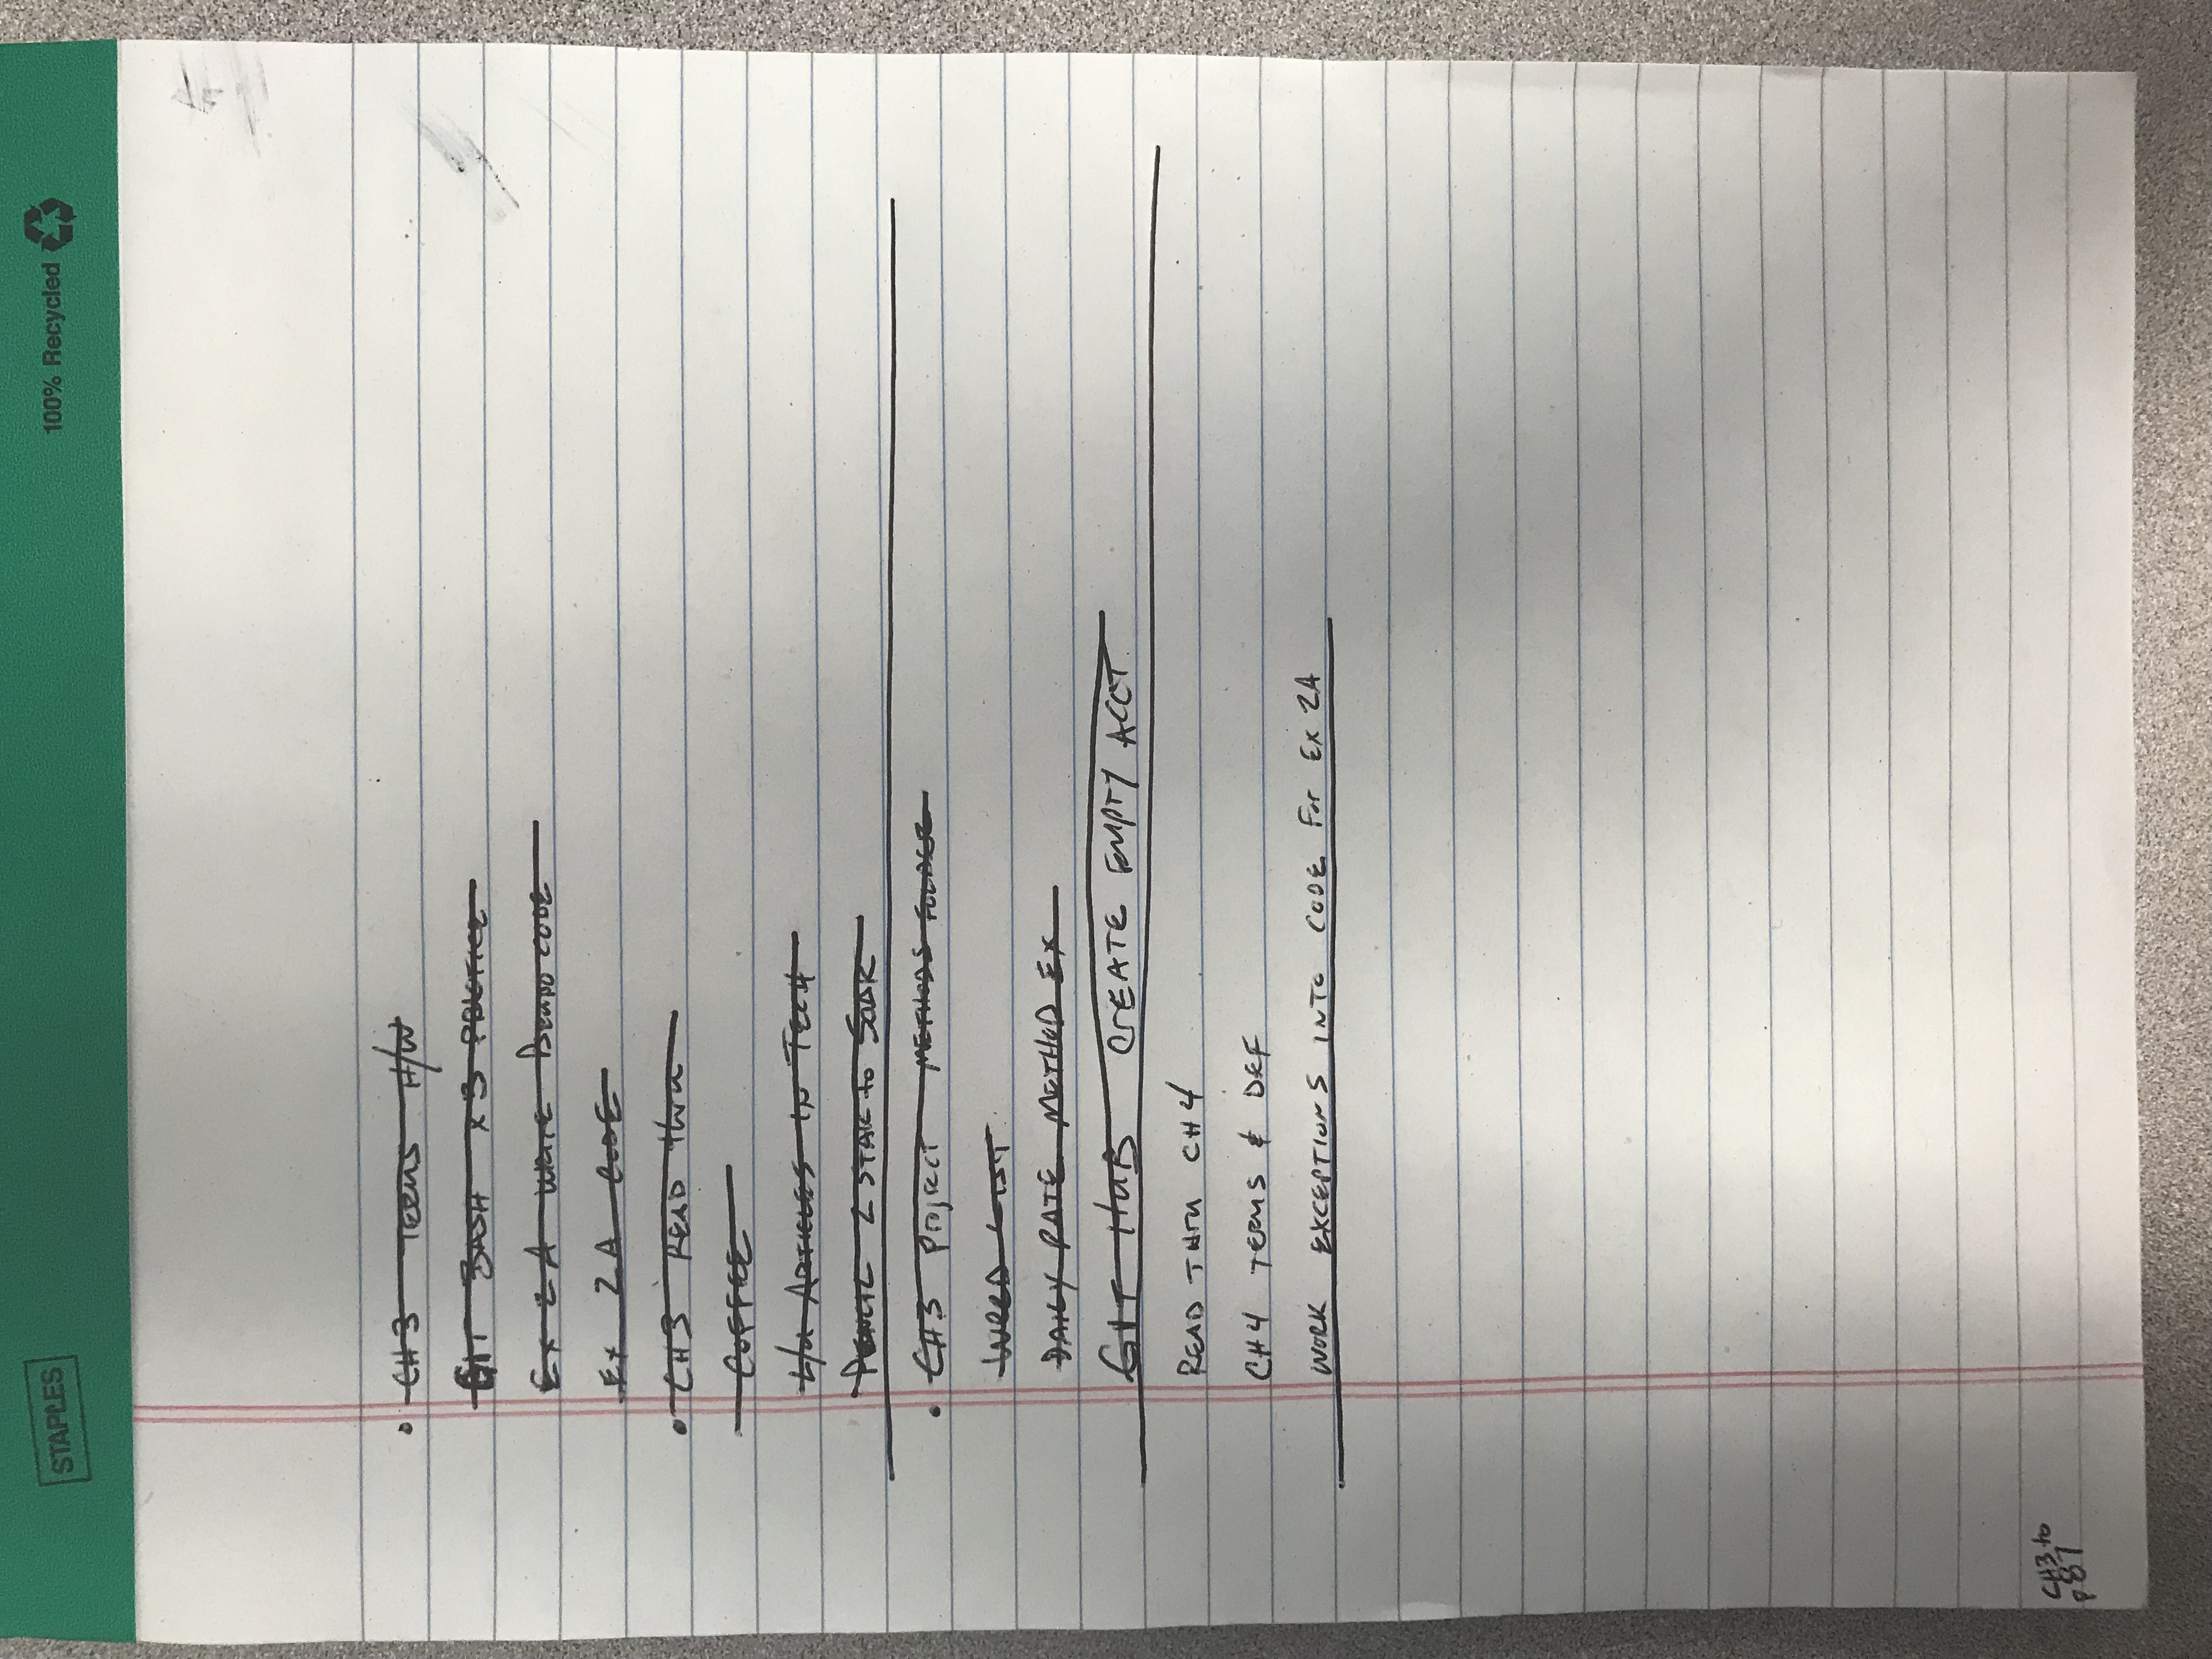 STAPLES
100% Recycled
CH 3 TERMS H/W
GIT BASH x 3 PRACTICE
Ex 2 A WRITE CODE
Ex 2 A CODE
CH3 READ thru
COFFEE
L/U ARTICLES IN TECH
PENCIL 2 to
CH3 Project METHODS FOLDER
WORD LIST
DAILY RATE METHOD EX
GIT HUB CREATE EMPTY ACCT.
READ THRU CH 4
CH 4 TERMS & DEF
WORK EXCEPTIONS INTO CODE For EX 2A
CH3 to
p 87